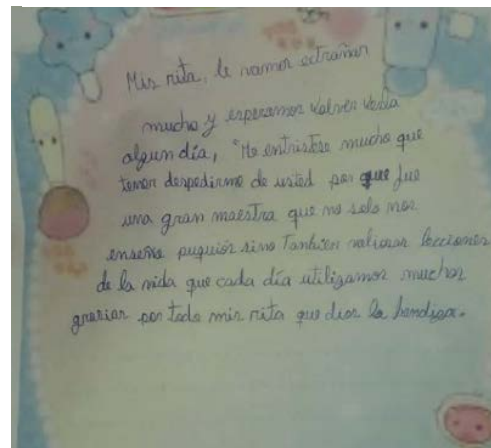 Mis rita, le vamos extrañar
mucho y esperamos volver verla
algun día, "Me entristese mucho que
tener despedirme de usted por que fue
una gran maestra que no solo nos
enseño puguios sino tanbien valiosas lecciones
de la vida que cada día utilizamos muchas
gracias por todo mis rita que dios la bendiga.